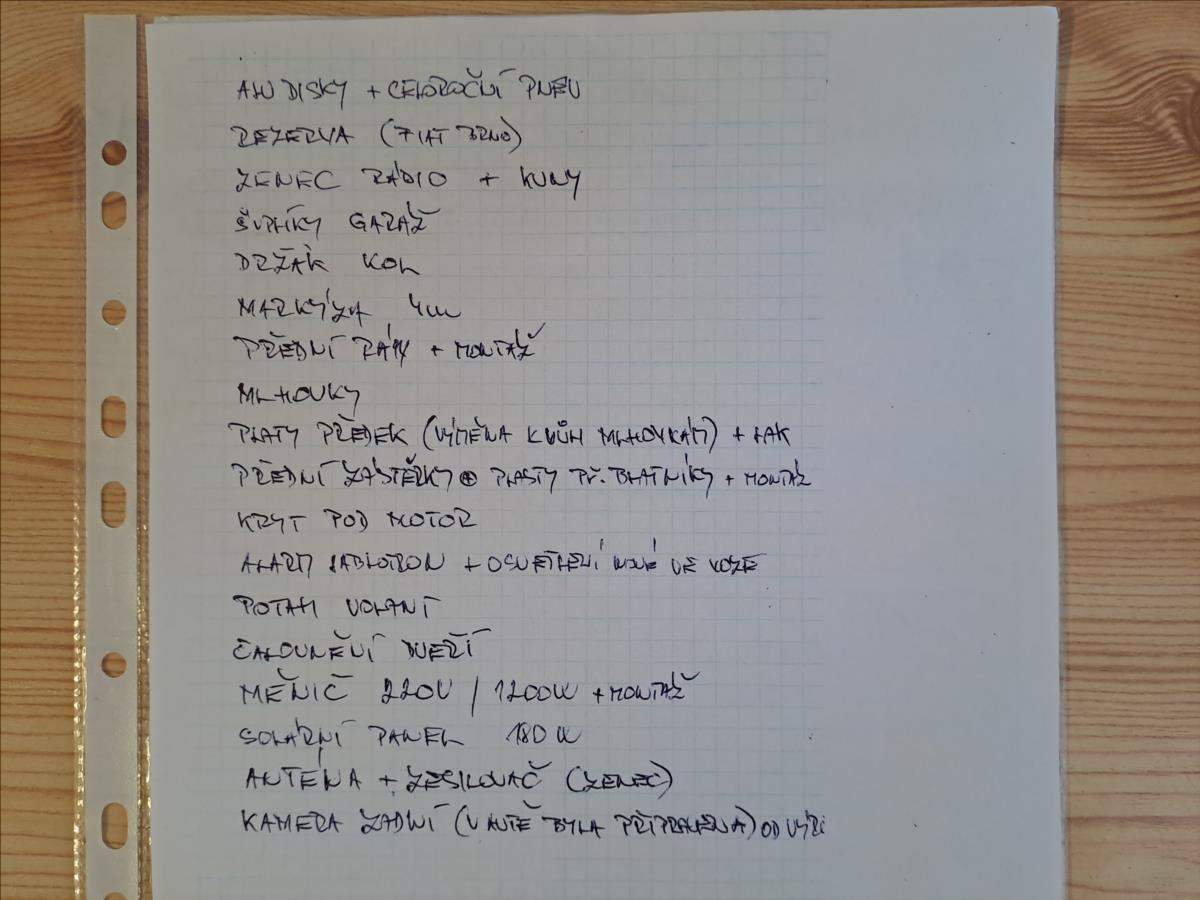 ALU DISKY + CELOROČNÍ PNEU
REZERVA (FIAT BRNO)
ZENEC RÁDIO + KUNY
ŠUPLÍKY GARÁŽ
DRŽÁK KOL
MARKÝZA 4m
PŘEDNÍ RÁMY + MONTÁŽ
MLHOVKY
PLATY PŘEDEK (VÝMĚNA KVŮLI MLHOVKÁM) + LAK
PŘEDNÍ ZÁSTĚRKY ⊕ PLASTY PŘ. BLATNÍKY + MONTÁŽ
KRYT POD MOTOR
ALARM JABLOTRON + OSVĚTLENÍ NOVÉ VE VOZE
POTAH VOLANT
ČALOUNĚNÍ DVEŘÍ
MĚNIČ 220V / 1200W + MONTÁŽ
SOLÁRNÍ PANEL 180 W
ANTÉNA + ZESILOVAČ (ZENEC)
KAMERA ZADNÍ (V AUTĚ BYLA PŘIPRAVENA) OD